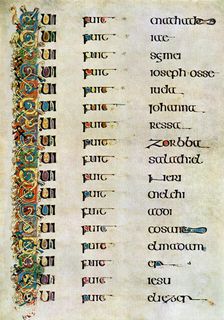 QUI FUIT MATHATHIAE
QUI FUIT IAE
QUI FUIT SEMEI
QUI FUIT IOSEPH OSSE
QUI FUIT IUDA
QUI FUIT IOHANNA
QUI FUIT RESSA
QUI FUIT ZORBBA
QUI FUIT SALATHIEL
QUI FUIT NERI
QUI FUIT MELCHI
QUI FUIT ADDI
QUI FUIT COSAM
QUI FUIT ELMADAM
QUI FUIT ER
QUI FUIT IESU
QUI FUIT ELIEZER